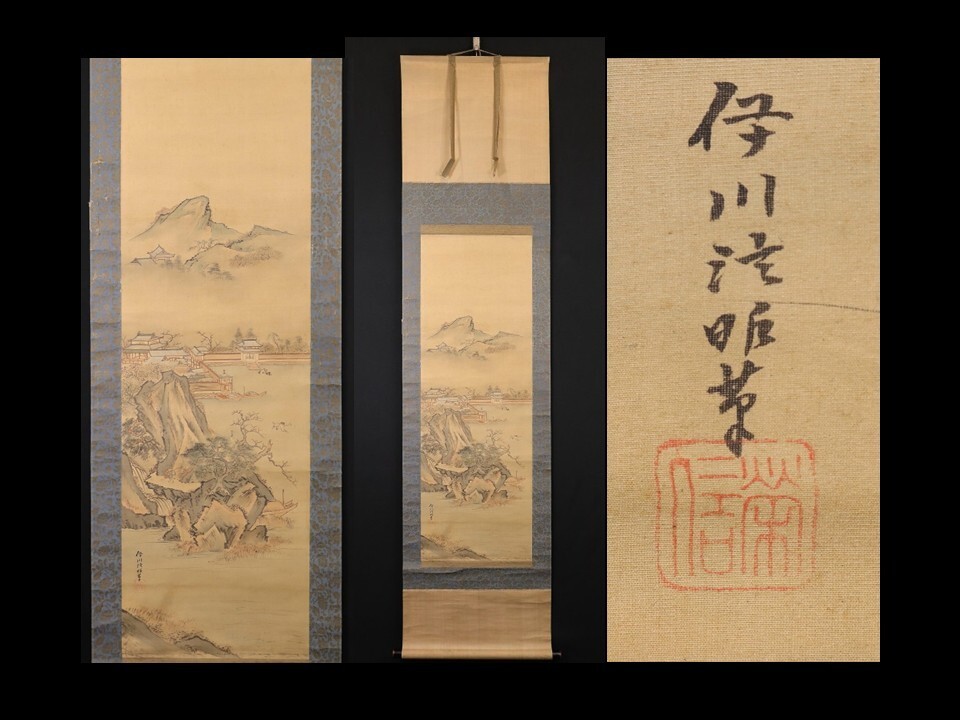 伊川法眼筆
榮信